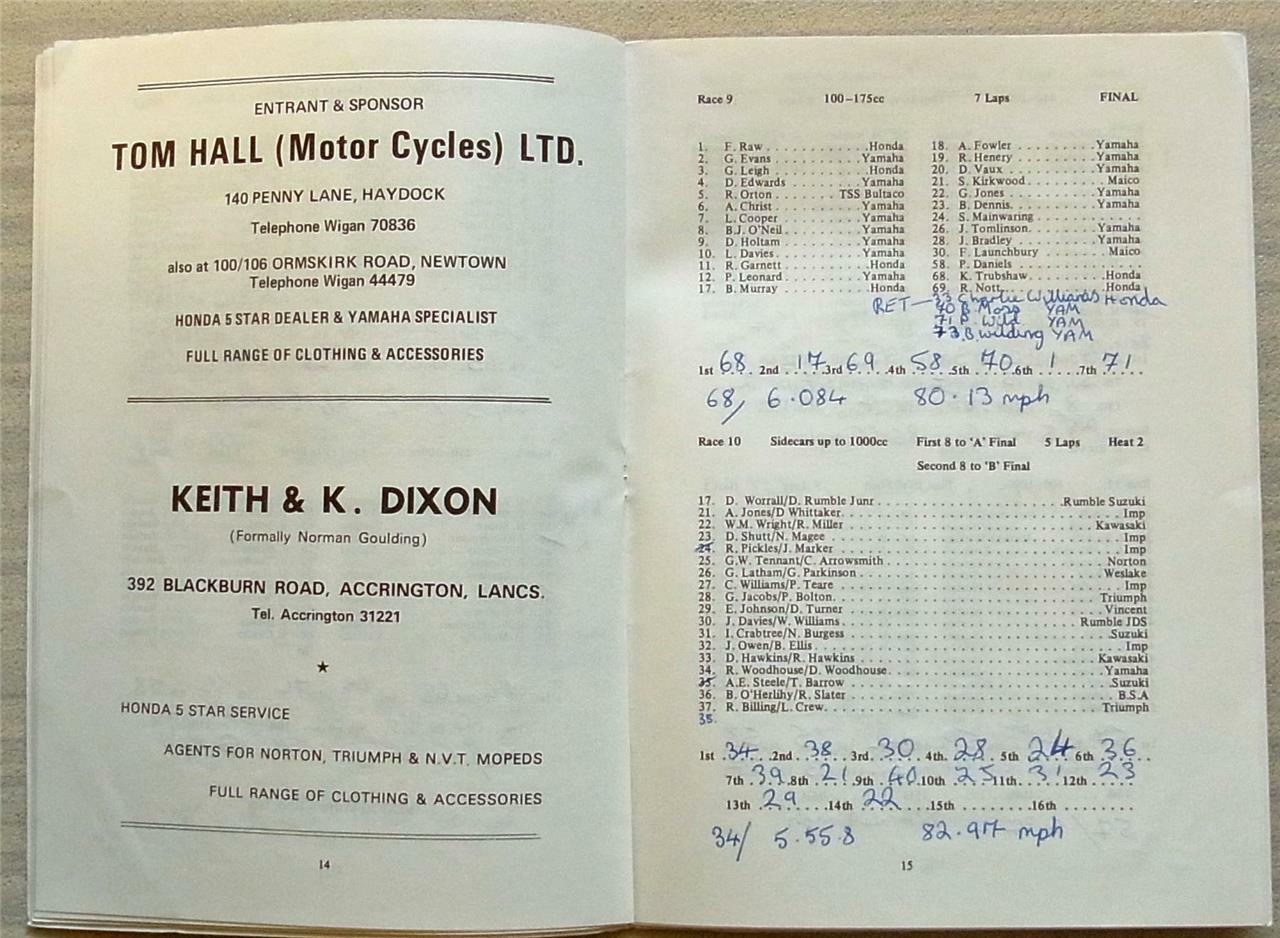 ENTRANT & SPONSOR
TOM HALL (Motor Cycles) LTD.
140 PENNY LANE, HAYDOCK
Telephone Wigan 70836
also at 100/106 ORMSKIRK ROAD, NEWTOWN
Telephone Wigan 44479
HONDA 5 STAR DEALER & YAMAHA SPECIALIST
FULL RANGE OF CLOTHING & ACCESSORIES
KEITH & K. DIXON
(Formally Norman Goulding)
392 BLACKBURN ROAD, ACCRINGTON, LANCS.
Tel. Accrington 31221
HONDA 5 STAR SERVICE
AGENTS FOR NORTON, TRIUMPH & N.V.T. MOPEDS
FULL RANGE OF CLOTHING & ACCESSORIES
14
Race 9 100-175cc 7 Laps FINAL
1. F. Raw . . . . . . . . . . Honda
2. G. Evans . . . . . . . . . Yamaha
3. G. Leigh . . . . . . . . . Honda
4. D. Edwards . . . . . . . . Yamaha
5. R. Orton . . . . . . . TSS Bultaco
6. A. Christ . . . . . . . . . Yamaha
7. L. Cooper . . . . . . . . Yamaha
8. B.J. O'Neil . . . . . . . . Yamaha
9. D. Holtam . . . . . . . . Yamaha
10. L. Davies . . . . . . . . . Yamaha
11. R. Garnett . . . . . . . . Honda
12. P. Leonard . . . . . . . . Yamaha
17. B. Murray . . . . . . . . Honda
18. A. Fowler . . . . . . . . Yamaha
19. R. Henery . . . . . . . . Yamaha
20. D. Vaux . . . . . . . . . Yamaha
21. S. Kirkwood . . . . . . . . Maico
22. G. Jones . . . . . . . . . Yamaha
23. B. Dennis. . . . . . . . . Yamaha
24. S. Mainwaring . . . . . . . . .
26. J. Tomlinson. . . . . . . Yamaha
28. J. Bradley . . . . . . . . Yamaha
30. F. Launchbury . . . . . . Maico
58. P. Daniels . . . . . . . . .
68. K. Trubshaw . . . . . . . Honda
69. R. Nott. . . . . . . . . . Honda
RET - 33 Charlie Williams Honda
70 B. Moss YAM
71 P. Wild YAM
73. B. wilding YAM
1st 68 2nd 17 3rd 69 4th 58 5th 70 6th 1 7th 71
68/ 6.084 80.13 mph
Race 10 Sidecars up to 1000cc First 8 to 'A' Final 5 Laps Heat 2
Second 8 to 'B' Final
17. D. Worrall/D. Rumble Junr . . . . . . . . Rumble Suzuki
21. A. Jones/D Whittaker. . . . . . . . . Imp
22. W.M. Wright/R. Miller . . . . . . . . Kawasaki
23. D. Shutt/N. Magee . . . . . . . . . Imp
24. R. Pickles/J. Marker . . . . . . . . . Imp
25. G.W. Tennant/C. Arrowsmith . . . . . . . . Norton
26. G. Latham/G. Parkinson . . . . . . . . Weslake
27. C. Williams/P. Teare . . . . . . . . . Imp
28. G. Jacobs/P. Bolton. . . . . . . . . Triumph
29. E. Johnson/D. Turner . . . . . . . . Vincent
30. J. Davies/W. Williams . . . . . . . . Rumble JDS
31. I. Crabtree/N. Burgess . . . . . . . . Suzuki
32. J. Owen/B. Ellis . . . . . . . . . Imp
33. D. Hawkins/R. Hawkins . . . . . . . . Kawasaki
34. R. Woodhouse/D. Woodhouse. . . . . . . . Yamaha
35. A.E. Steele/T. Barrow . . . . . . . . Suzuki
36. B. O'Herlihy/R. Slater . . . . . . . . B.S.A
37. R. Billing/L. Crew. . . . . . . . . Triumph
35.
1st 34 2nd 38 3rd. 30 4th. 28 5th 24 6th 36
7th 39 8th 21 9th 40 10th 25 11th 31 12th 23
13th 29 14th 22 15th . . . . . . . . 16th . . . . . . . .
34/ 5.55.8 82.97 mph
15